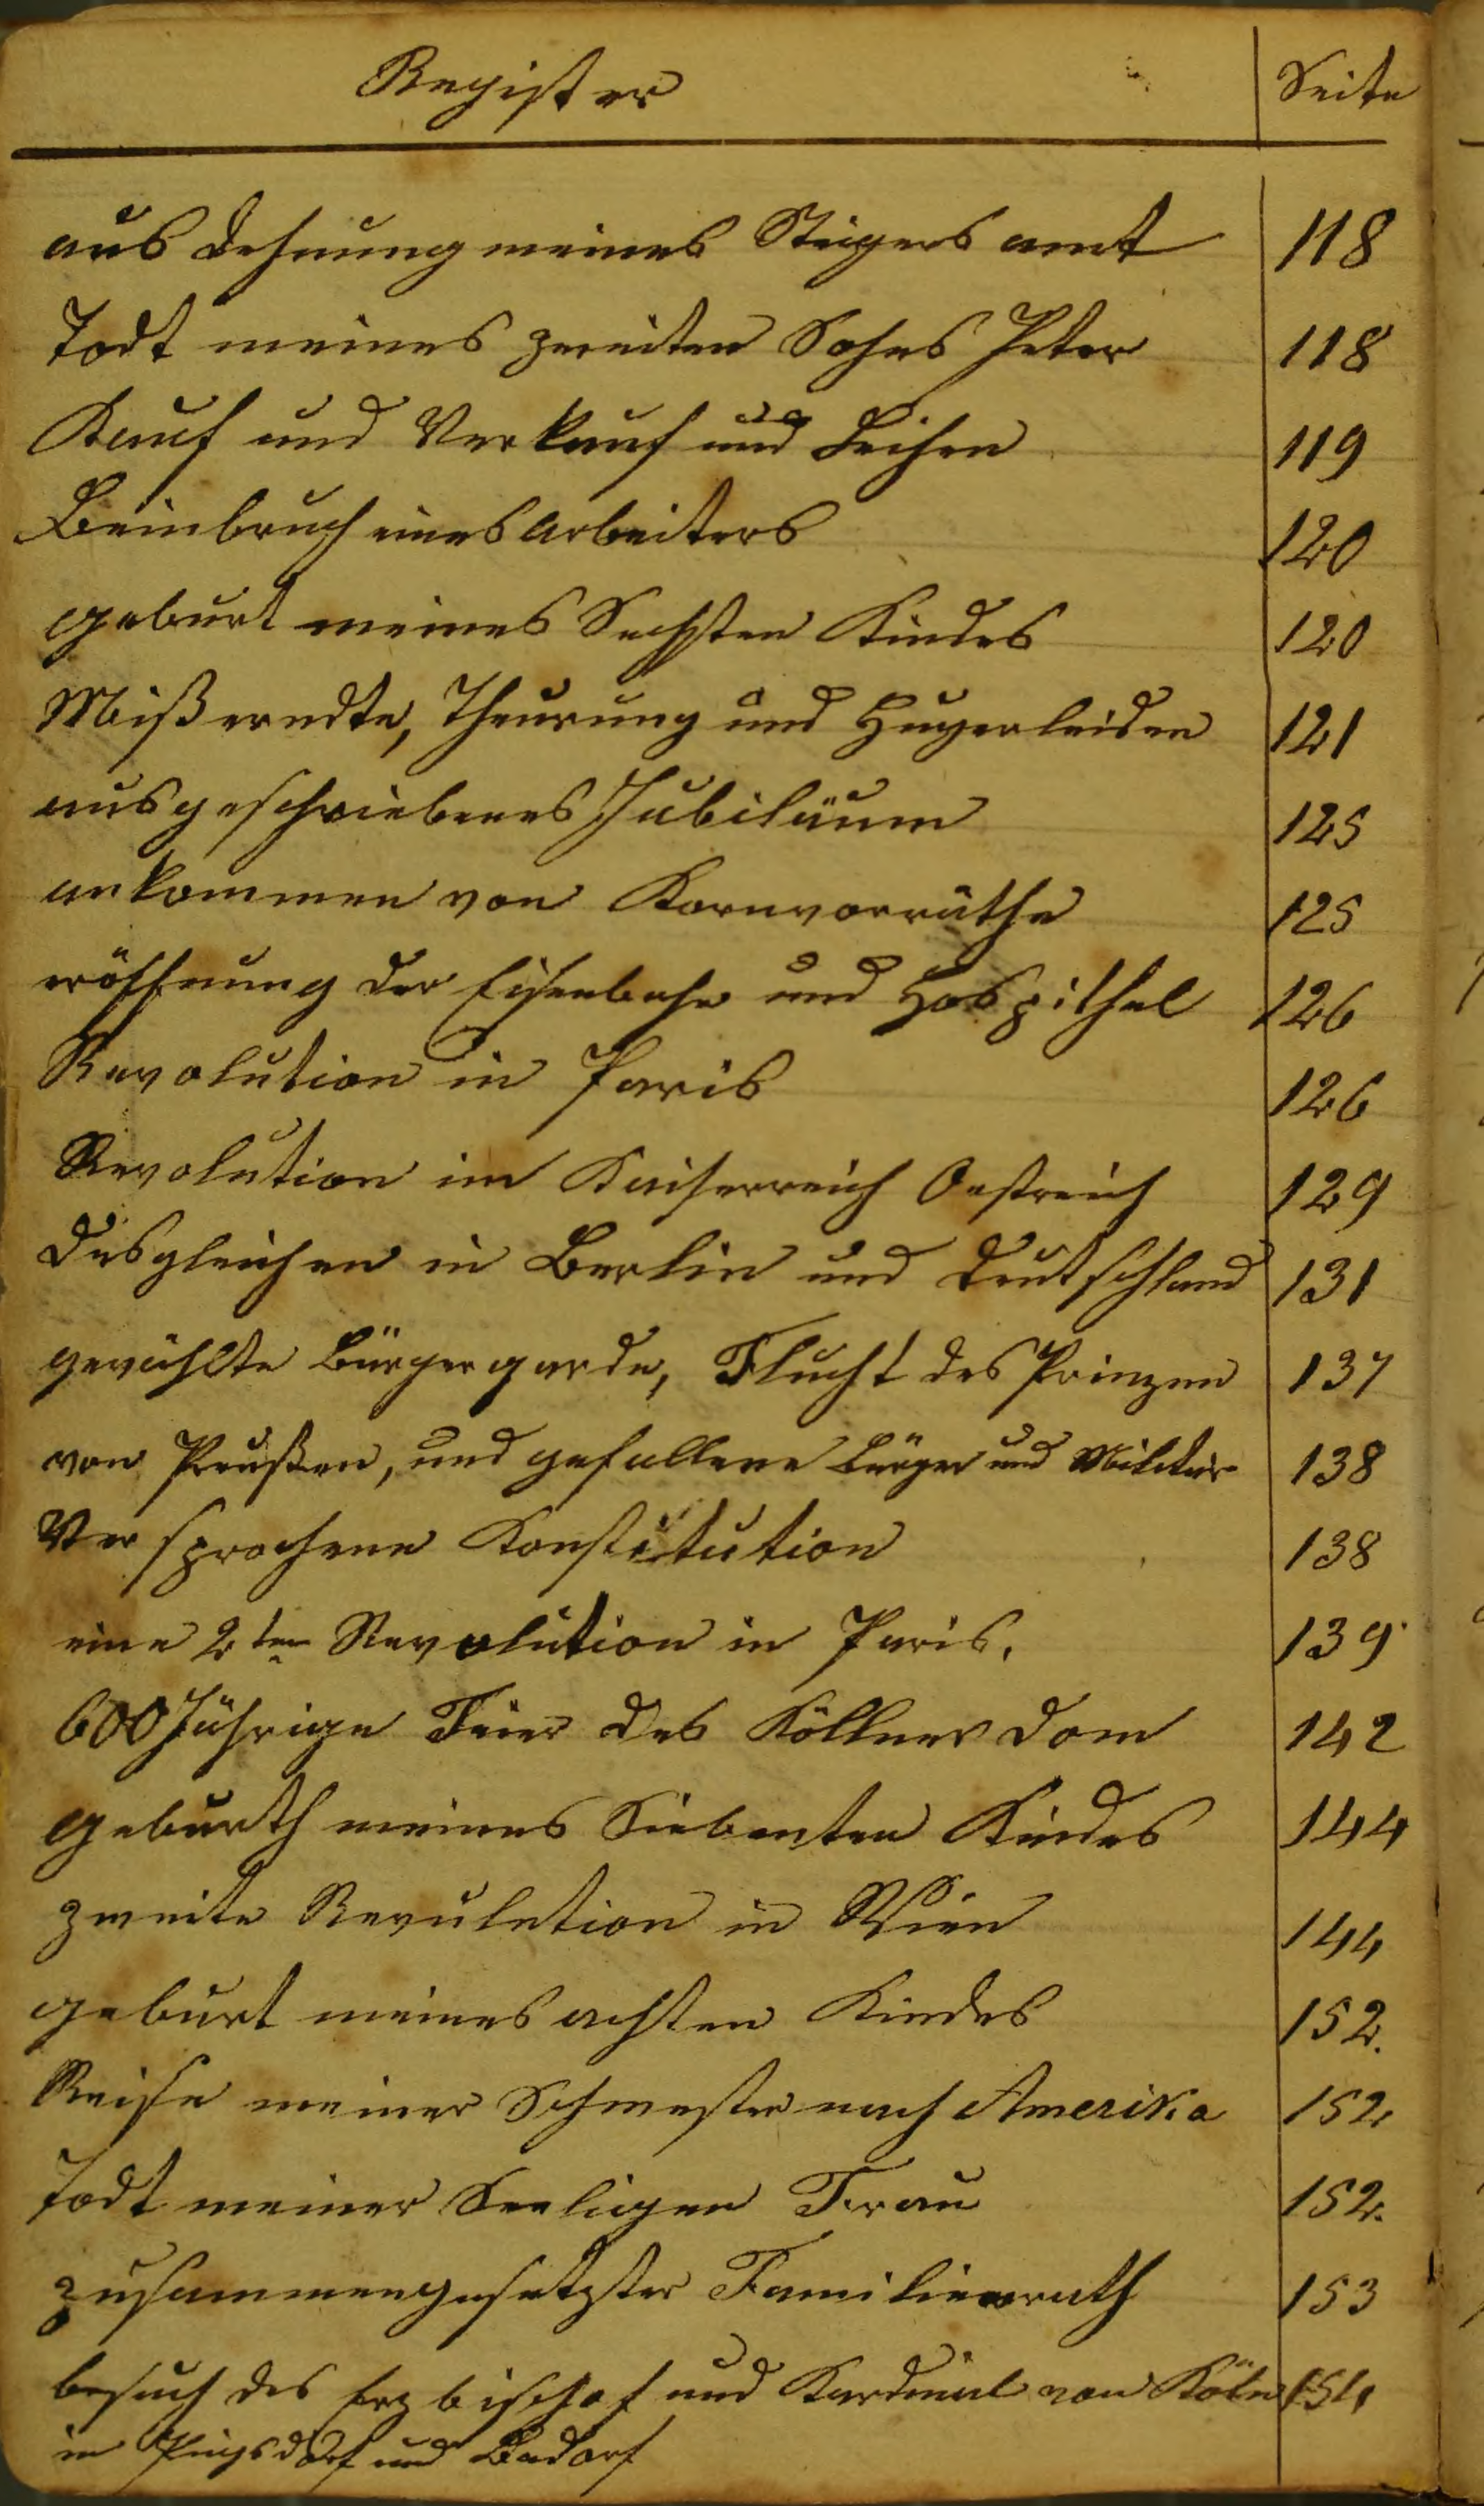 Register Seite
aus dehnung meines Steigers amt 118
Todt meines zweiten Sohns Peter 118
Kauf und Verkauf und Leihen 119
Beinbruch eines Arbeiters 120
geburt meines Sechsten Kindes 120
Mißerndte, Theurung und Hugerleiden 121
ausgeschriebenes Jubiläum 125
ankommen von Kornvorräthe 125
eröffnung der Eisenbahn und Hospithal 126
Revolution in Paris 126
Revolution im Kaiserreich Oestreich 129
desgleichen in Berlin und Deutschland 131
gewählte Bürgergarde, Flucht des Prinzen 137
von Preußen, und gefallene Bürger und Militär 138
Versprochene Konstitution 138
eine 2te Revolution in Paris. 139
600 Jährige Feier des Köllner Dom 142
geburth meines Siebenten Kindes 144
zweite Revulution in Wien 144
geburt meines achten Kindes 152.
Reise meiner Schwester nach Amerika 152
Todt meiner Seeligen Frau 152.
zusammengesetzter Familienrath 153
besuch des Erzbischof und Kardinal von Köln 154
in Pingsdorf und Badorf